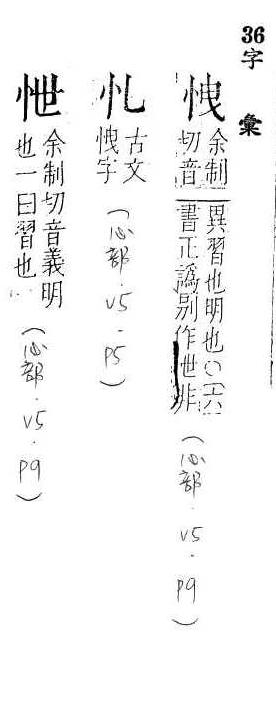 36字 彙
余制
切音
異習也明也○六
書正譌別作世非
(心部．V5．P9)
古文
字
(心部．V5．P5)
怈
余制切音義明
也一曰習也
(心部．V5．P9)